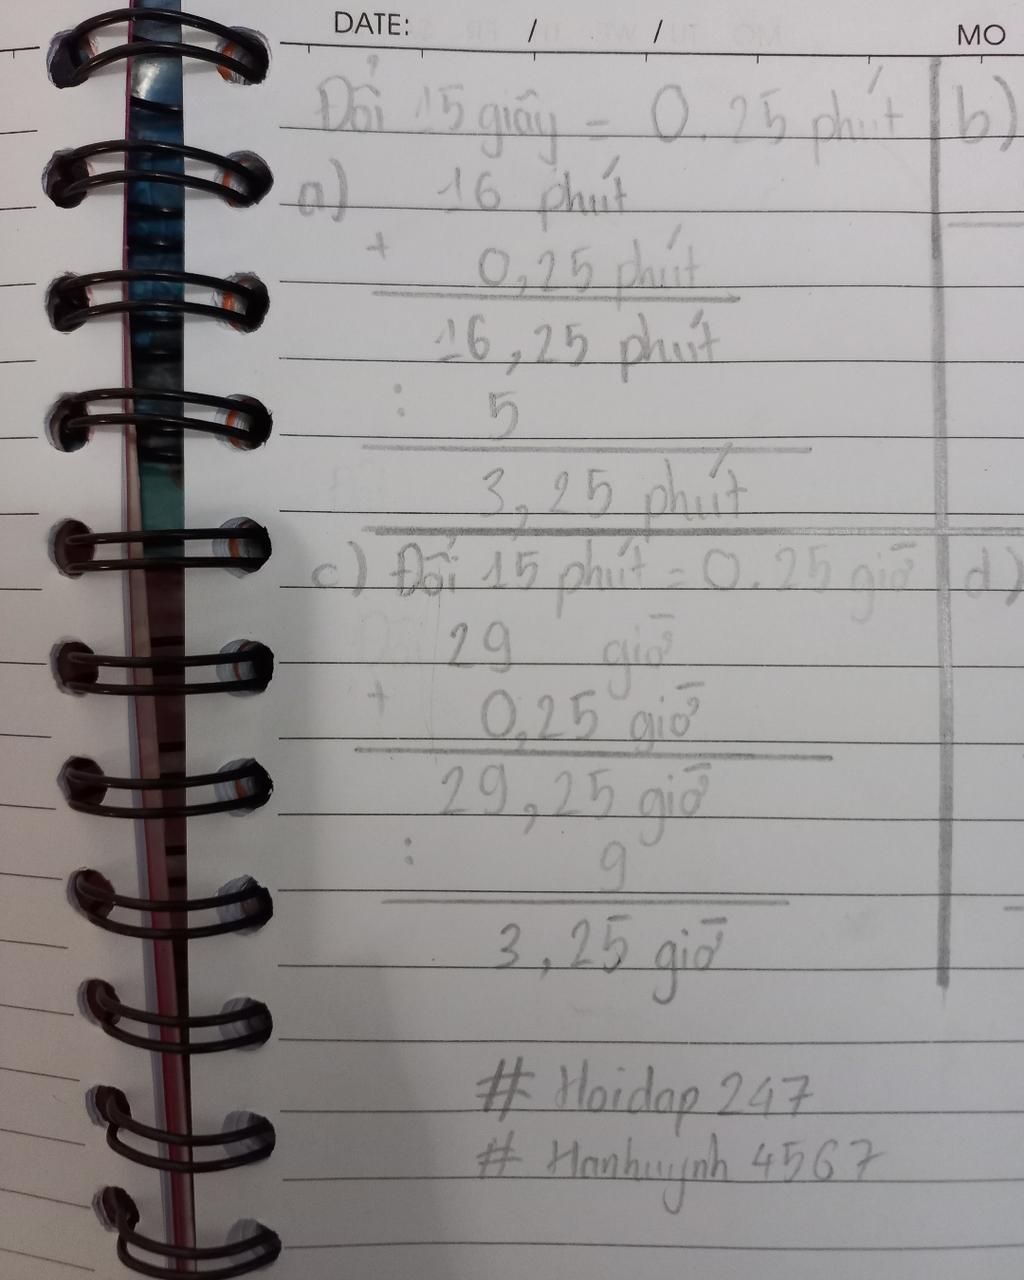 DATE: / / MO
Đổi 15 giây = 0.25 phút b)
a) 16 phút
+
0,25 phút
16,25 phút
: 5
3,25 phút
c) Đổi 15 phút = 0.25 giờ d)
29 giờ
+
0,25 giờ
29,25 giờ
: 9
3,25 giờ
# Hoidap 247
# Hanhuynh 4567